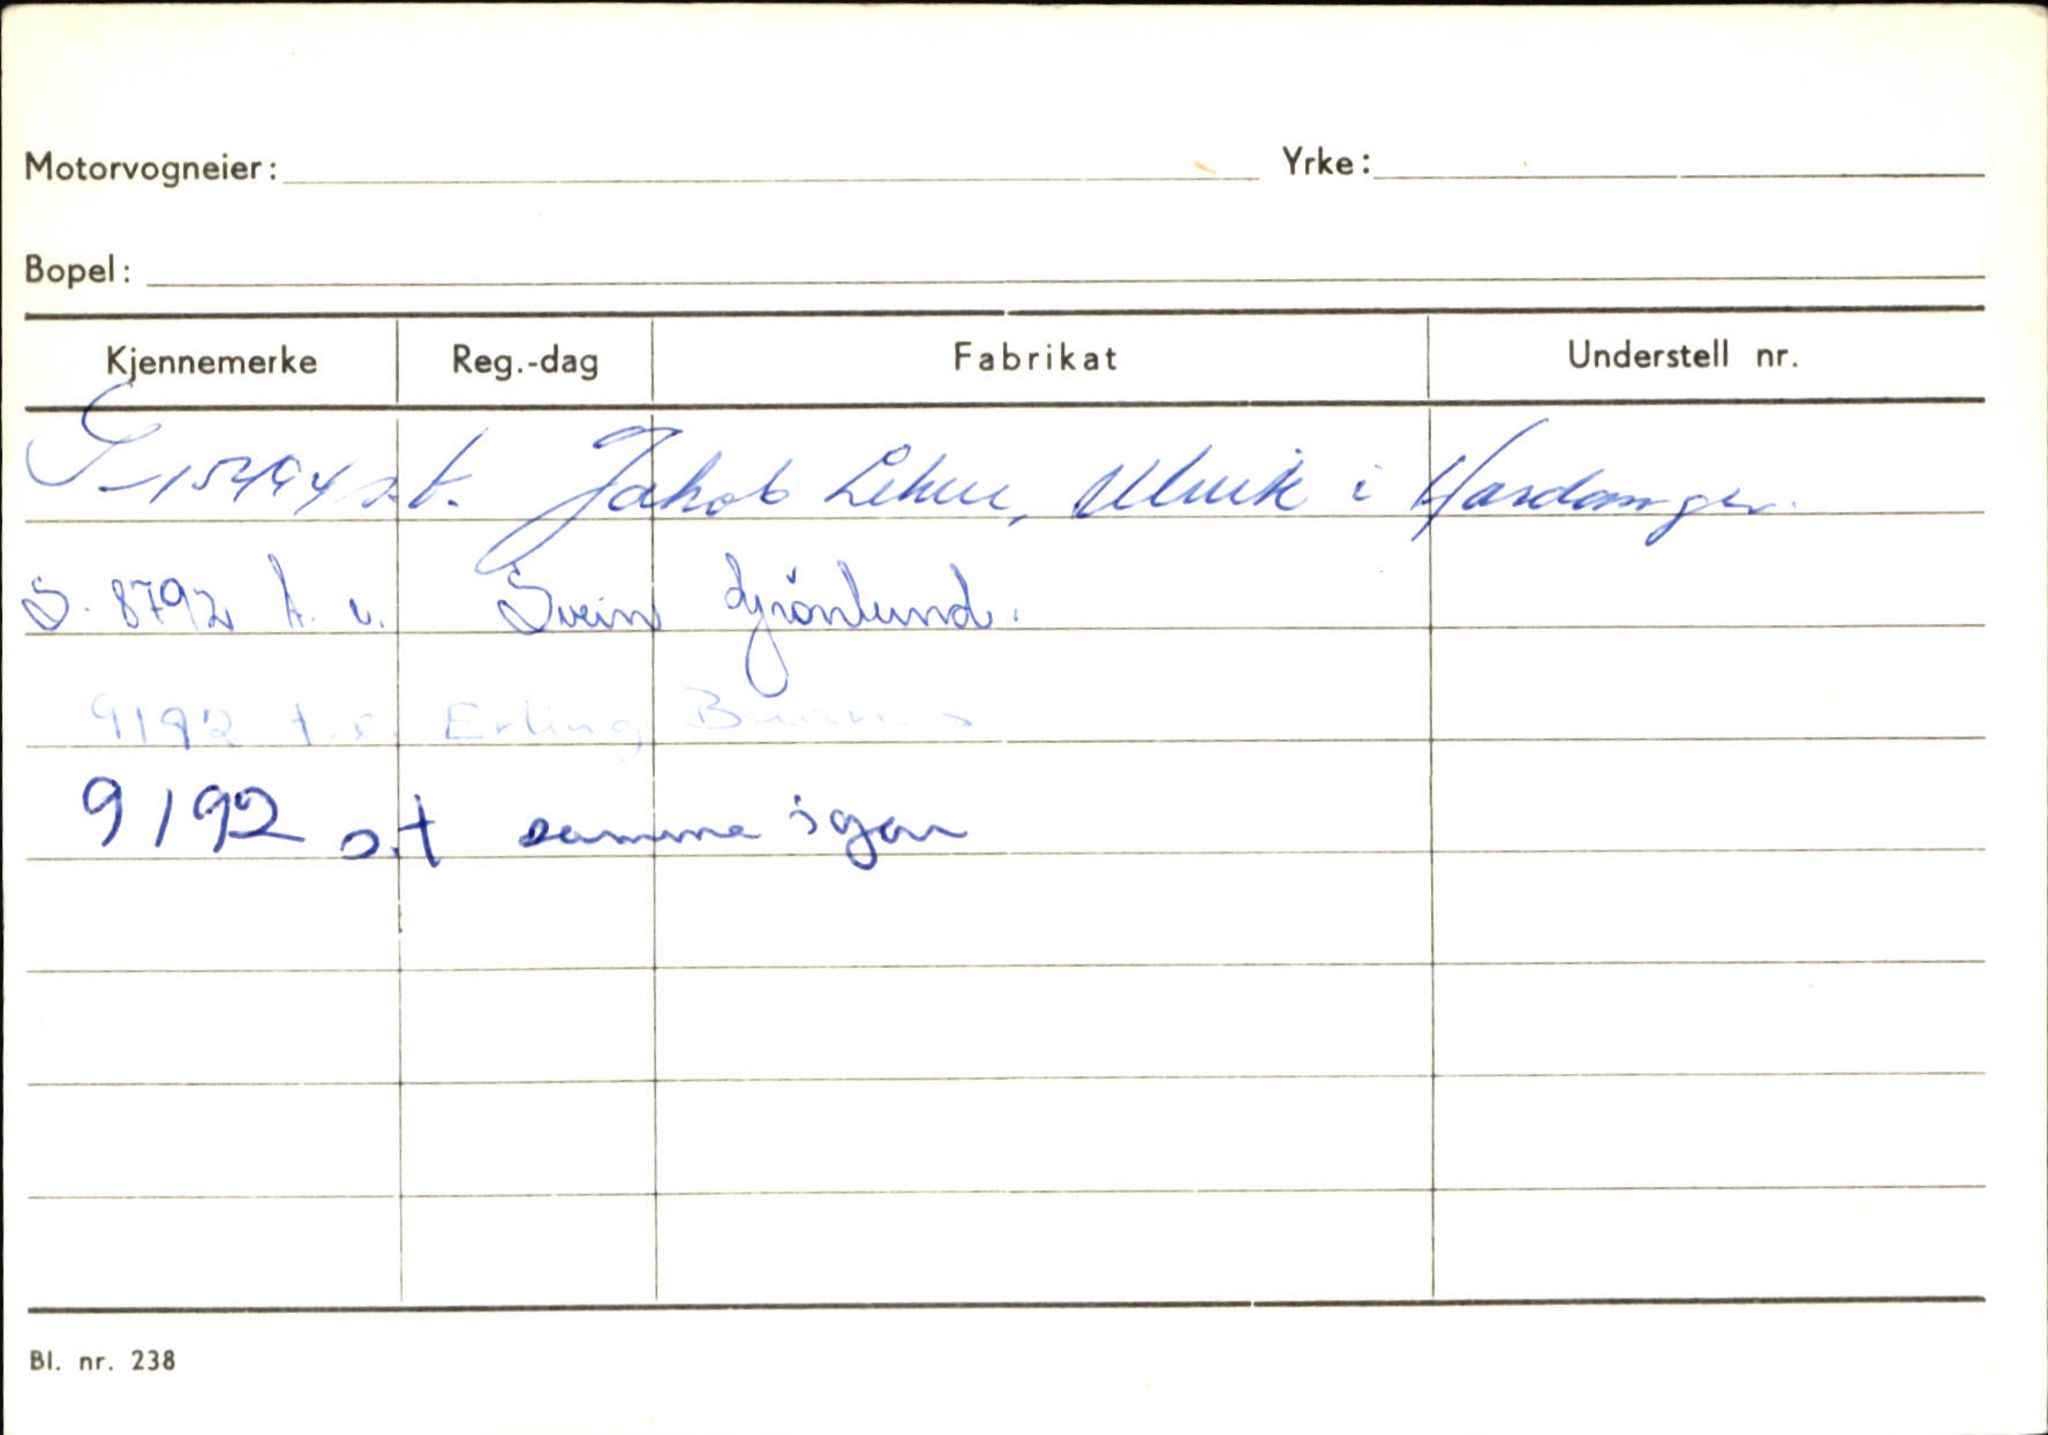 Motorvogneier: Yrke:
Bopel:
Kjennemerke Reg.-dag Fabrikat Understell nr.
S-15494 s.t. Jakob i Hardanger.
S. 8792 t. v. Svein Grönlund.
9192 Erling
9192 s.t samme igen
Bl. nr. 238